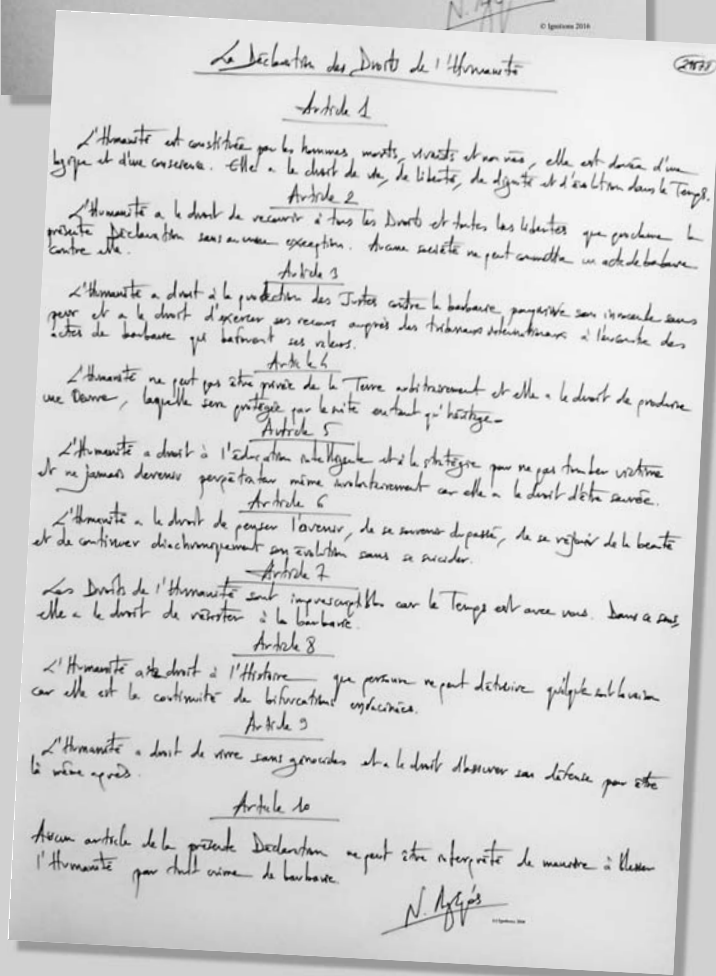 © Ignitions 2016
La Déclaration des Droits de l'Humanité
Article 1
L'Humanité est constituée par les hommes morts, vivants et non nés, elle est dotée d'une
logique et d'une conscience. Elle a le droit de vie, de liberté, de dignité et d'évolution dans le Temps.
Article 2
L'Humanité a le droit de recourir à tous les Droits et toutes les libertés que proclame la
présente Déclaration sans aucune exception. Aucune société ne peut commettre un acte de barbarie
contre elle.
Article 3
L'Humanité a droit à la protection des Justes contre la barbarie innocente sans
peur et a le droit d'exercer ses recours auprès des tribunaux internationaux à l'encontre des
actes de barbarie qui bafouent ses valeurs.
Article 4
L'Humanité ne peut pas être privée de la Terre arbitrairement et elle a le droit de produire
une Oeuvre, laquelle sera protégée par le mité en tant qu'héritage.
Article 5
L'Humanité a droit à l'éducation intelligente et à la stratégie pour ne pas tomber victime
et ne jamais devenir perpétrateur même involontairement car elle a le droit d'être sauvée.
Article 6
L'Humanité a le droit de penser l'avenir, de se souvenir du passé, de se réjouir de la beauté
et de continuer diachroniquement son évolution sans se suicider.
Article 7
Les Droits de l'Humanité sont imprescriptibles car le Temps est avec vous. Dans ce sens,
elle a le droit de résister à la barbarie.
Article 8
L'Humanité a droit à l'Histoire que personne ne peut détruire quelqu'en soit la raison
car elle est la continuité de bifurcations enracinées.
Article 9
L'Humanité a droit de vivre sans génocides et a le droit d'assurer sa défense pour être
là même après.
Article 10
Aucun article de la présente Déclaration ne peut être interprété de manière à blesser
l'Humanité par tout crime de barbarie.
N. Lygerós
© Ignitions 2016